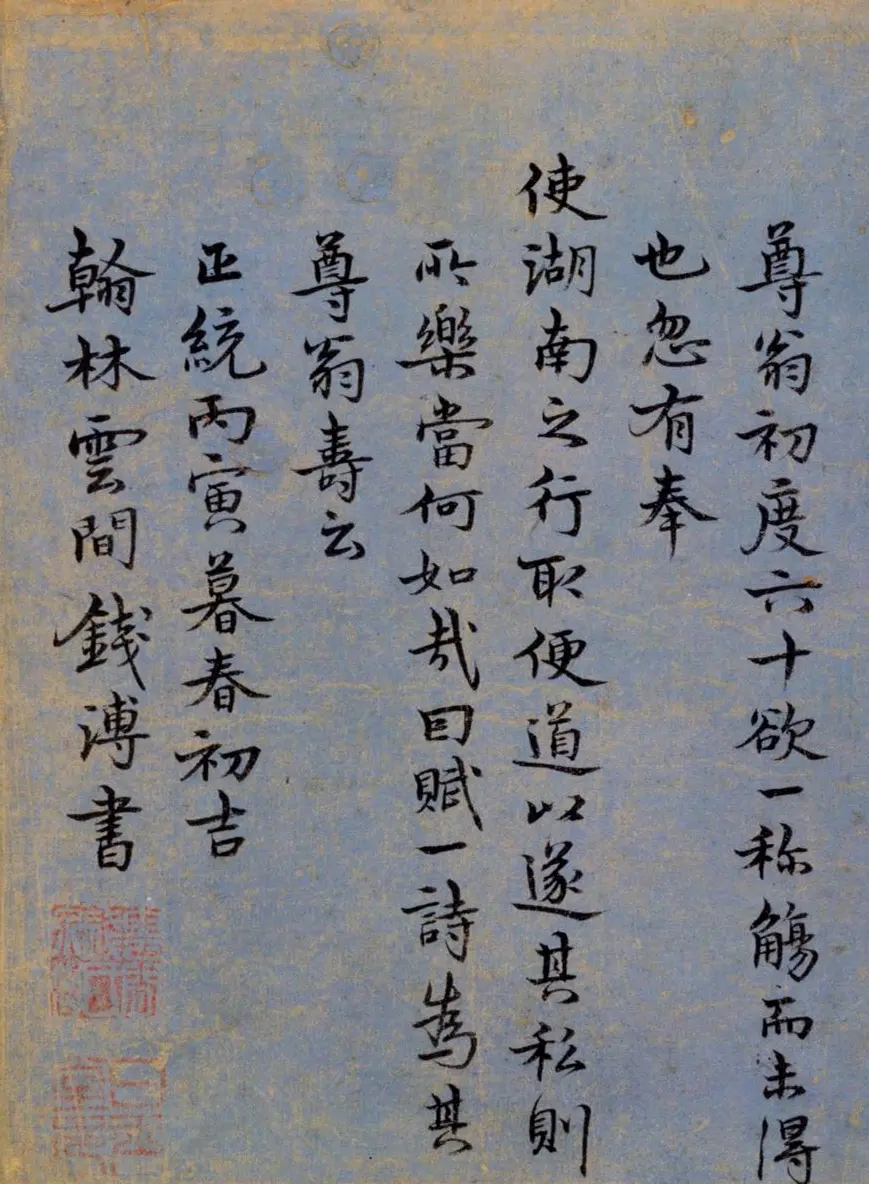 尊翁初度六十欲一称觴而未得
也忽有奉
使湖南之行取便道以遂其私則
所樂當何如哉因賦一詩為其
尊翁壽云
正統丙寅暮春初吉
翰林雲間錢溥書